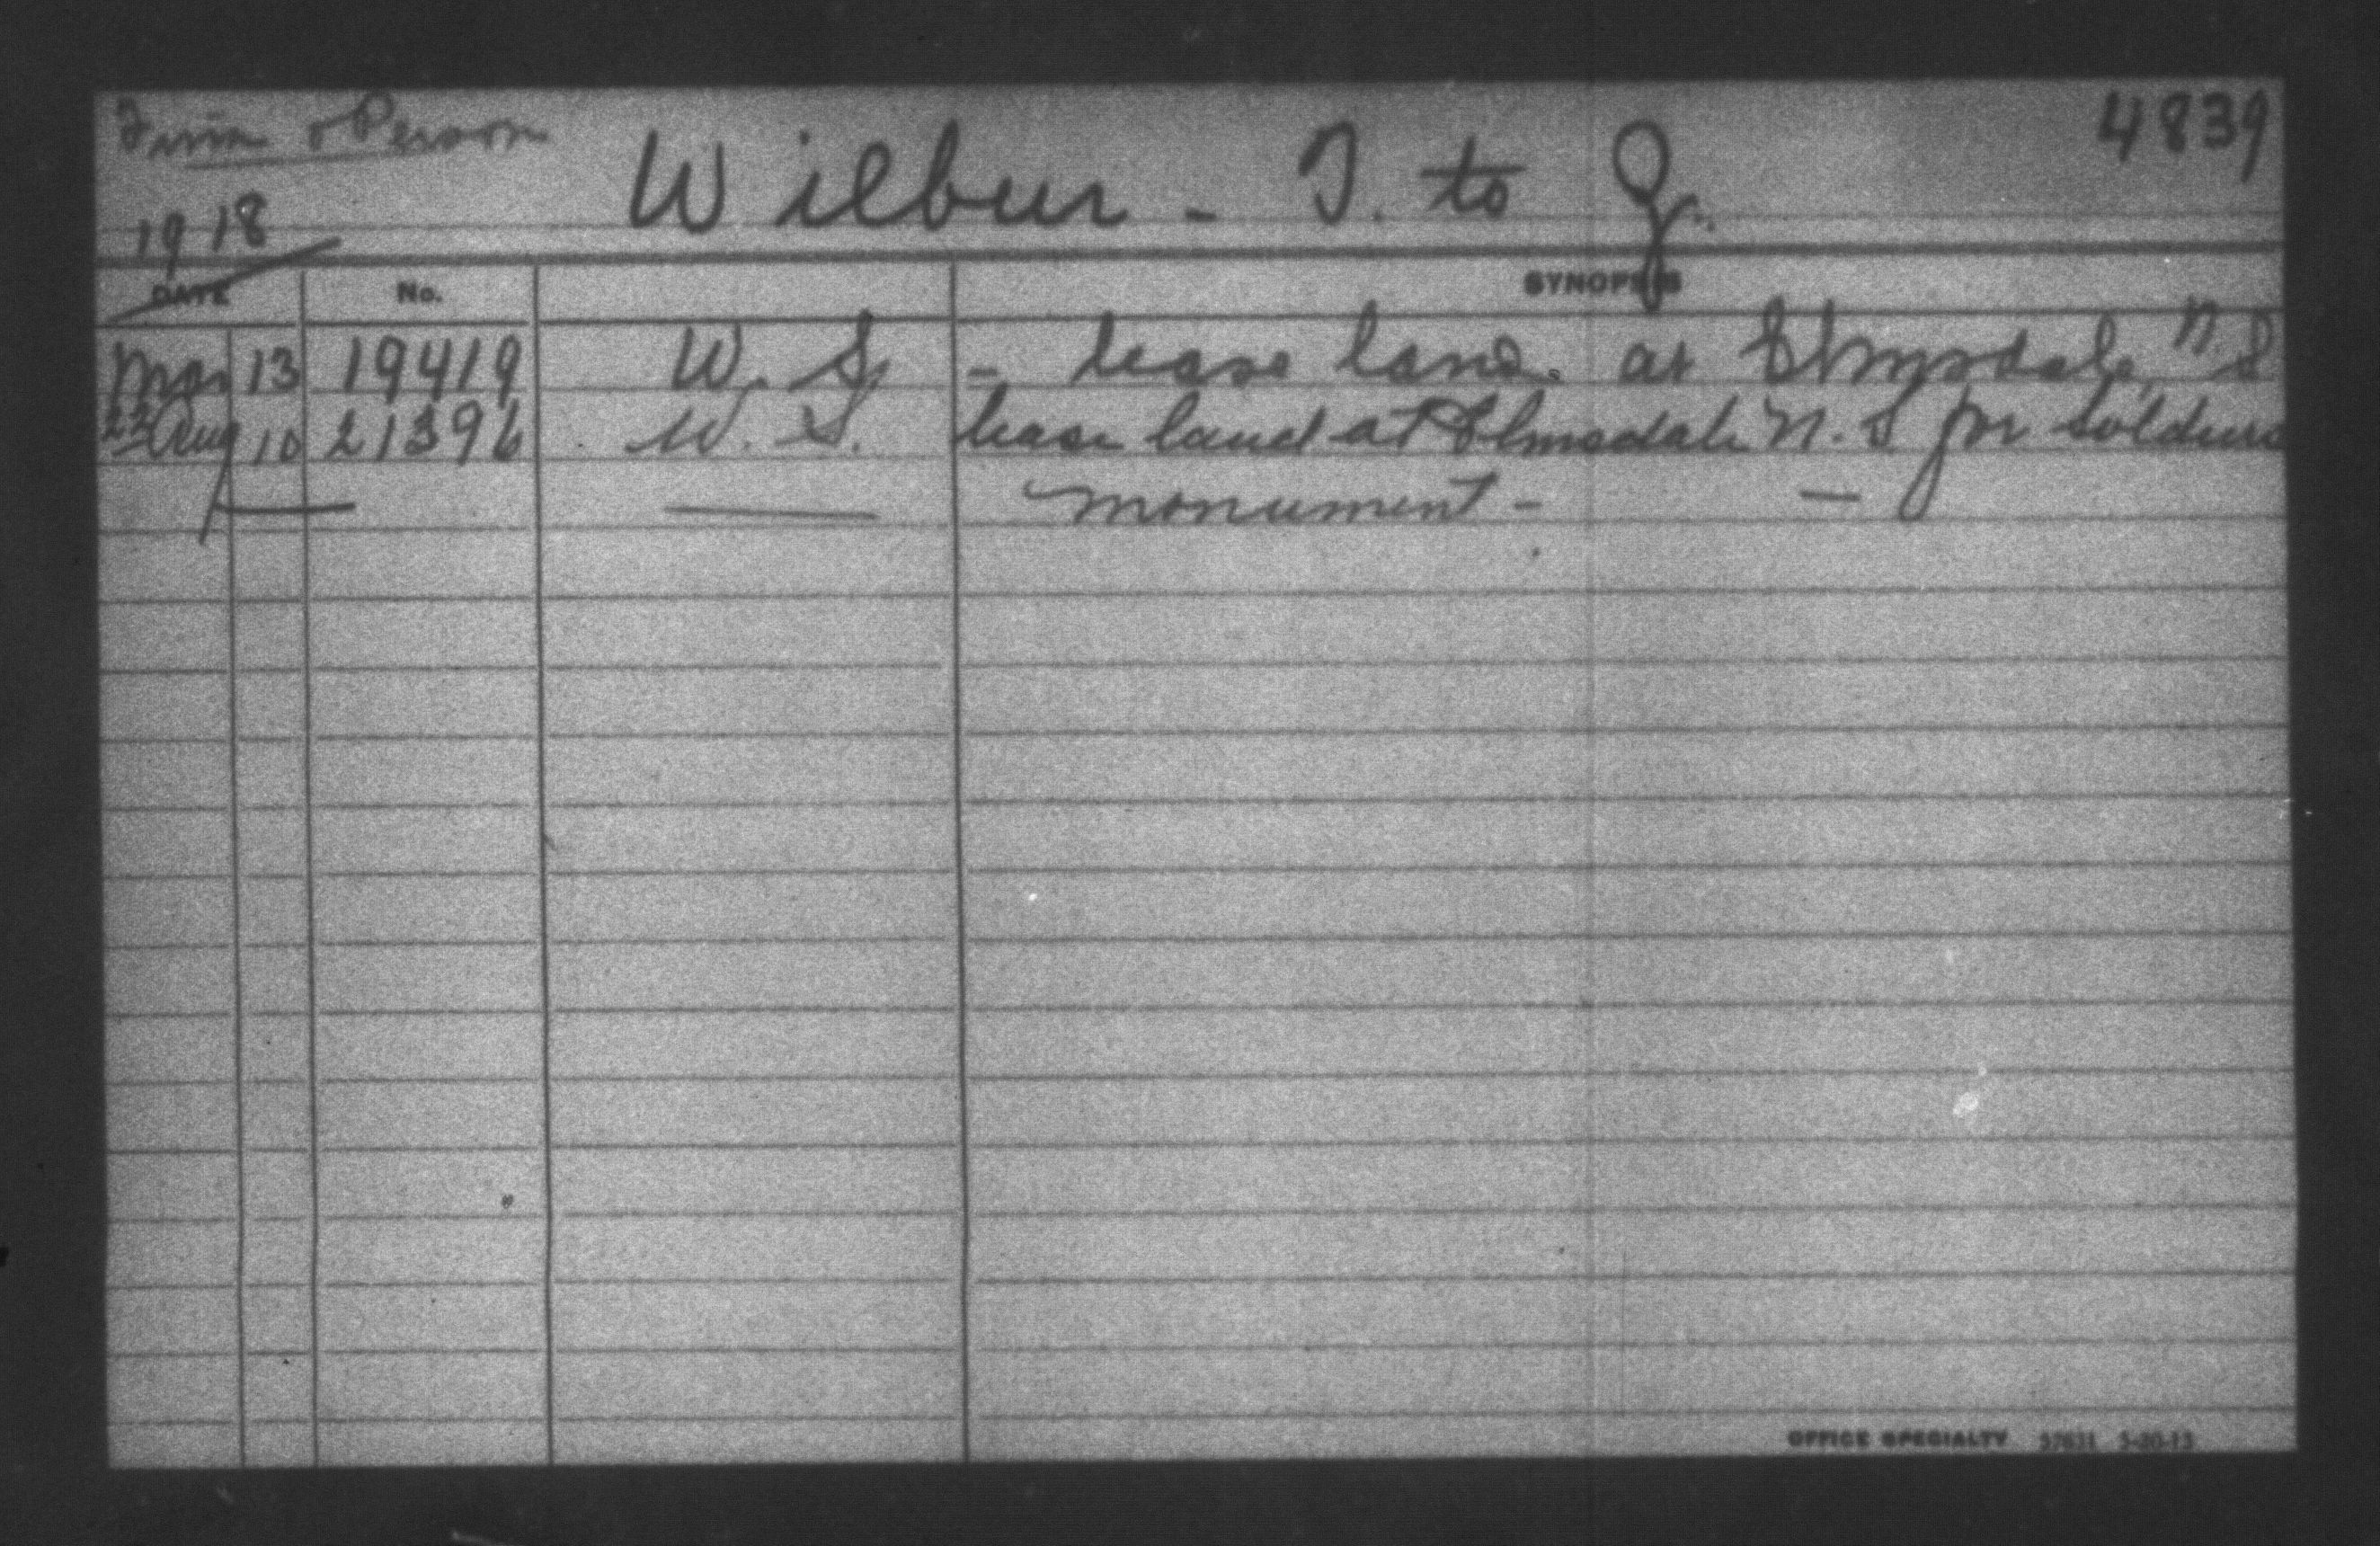 Firm or Person
4839
Wilbur - T. to Z.
1918
DATE No. SYNOPSIS
Mar 13 19419 W. S. - lease land. at Elmsdale, N. S
22 Aug 10 21396 W. S. lease land at Elmsdale N. S. for soldiers
monument -
OFFICE SPECIALTY 57631 5-20-13